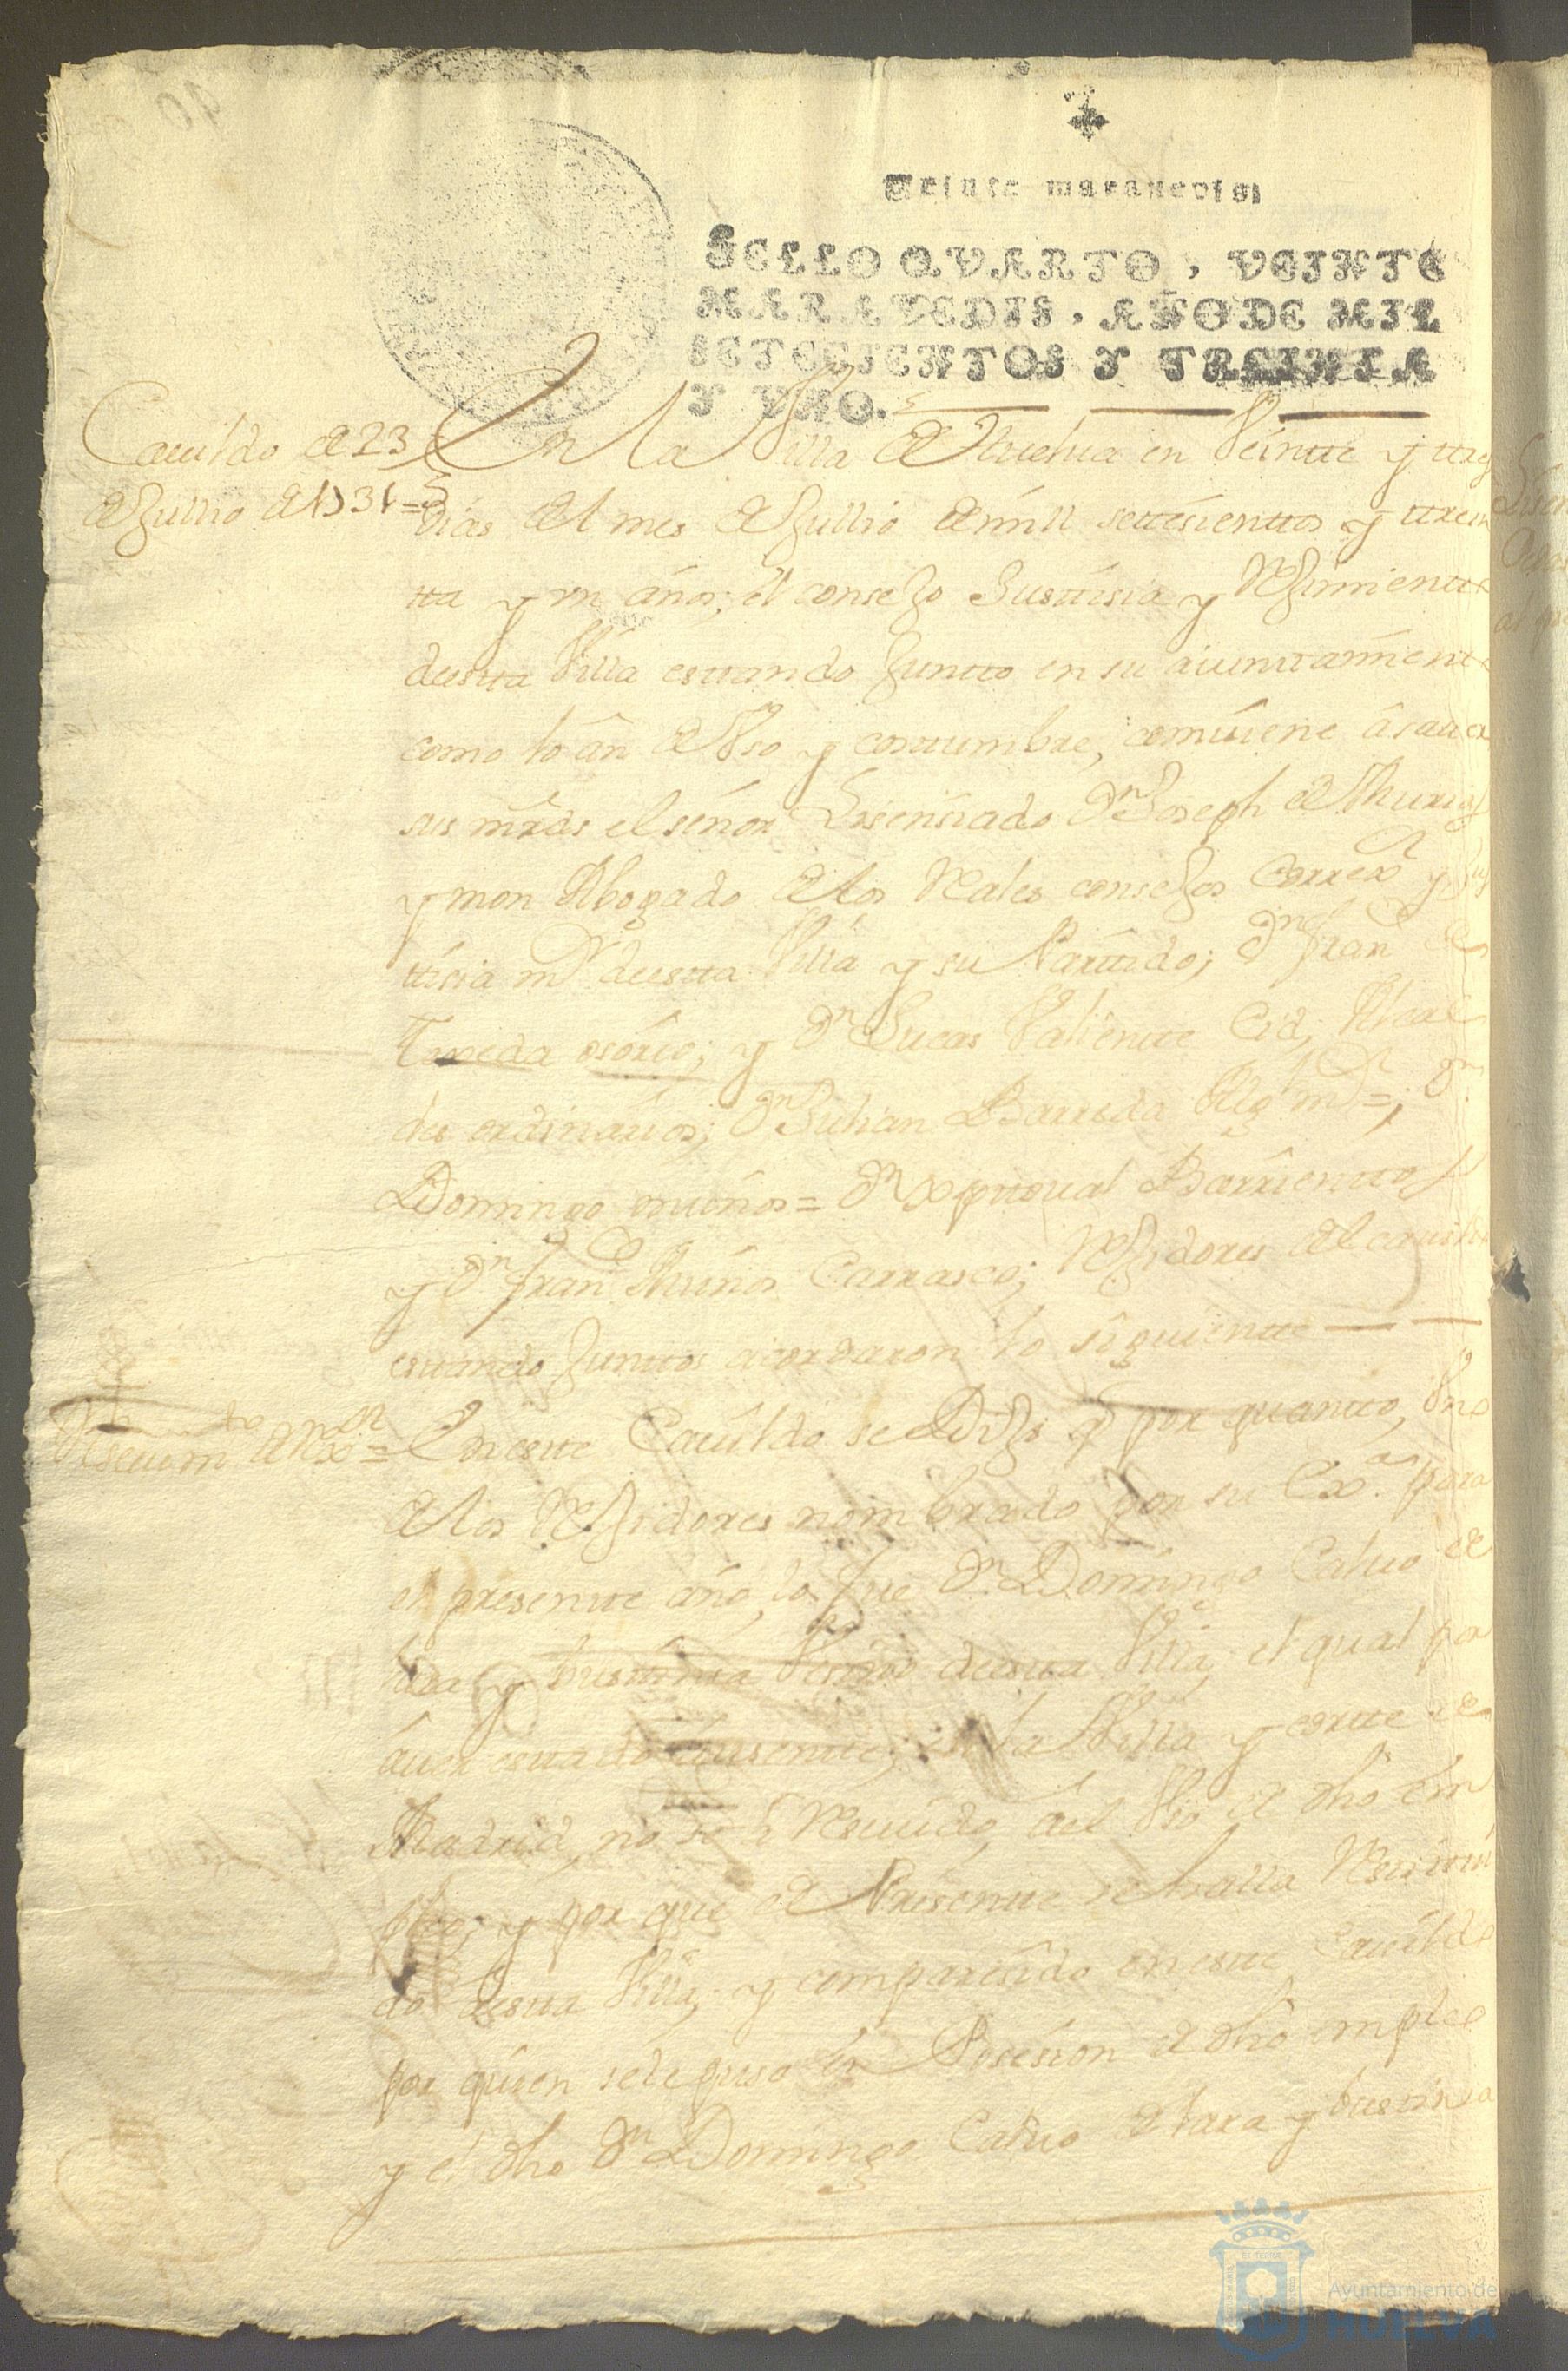 Veinte maravedis
SELLO QVARTO, VEINTE
MARAVEDIS, AÑO DE MIL
SETECIENTOS Y TREINTA
Y VNO.
Cauildo de 23
de Jullio de 1731=
En la Villa de Huelua en Veintte y ttres
dias del mes de Jullio de mill settesienttos y ttrein
tta y un años; el consejo Justtisia y Rejimientto
de estta Villa esttando Juntto en su aiunttamientto
como lo an de Vso y costtumbre, combiene a sauer
sus mrds el señor Lisensiado Dn Joseph de
y mon Abogado de los Reales consejos Correxr y Jus
ttisia mr de estta Villa y su Parttido; Dn Franco de
osorio; y Dn Lucas Valientte Cid, Alcal
des ordinarios; Dn Julian Barreda Algl mr=; Dn
Domingo muños= Dn Xpttoual Barrienttos
y Dn Franco Muños Carrasco; Rejidores del cauildo
esttando Junttos acordaron lo siguientte
Reseuimto de Rexor=
En estte Cauildo se Dijo q por quantto, Vno
de los Rejidores nombrado por su Exa. para
el presentte año, lo fue Dn Domingo Caluo de
lara y busttinsa Vesino de estta Villa, el qual por
auer esttado ausentte, en la Villa y cortte de
Madrid, no se a Resiuido, al Vso de dho em
pleo; y por que de Presentte se halla Resittui
do a estta Villa, y comparesido en estte Cauildo
por quien se le puso en Posesion de dho empleo
y el dho Dn Domingo Caluo de lara y busttinsa
Ayuntamiento de
HUELVA